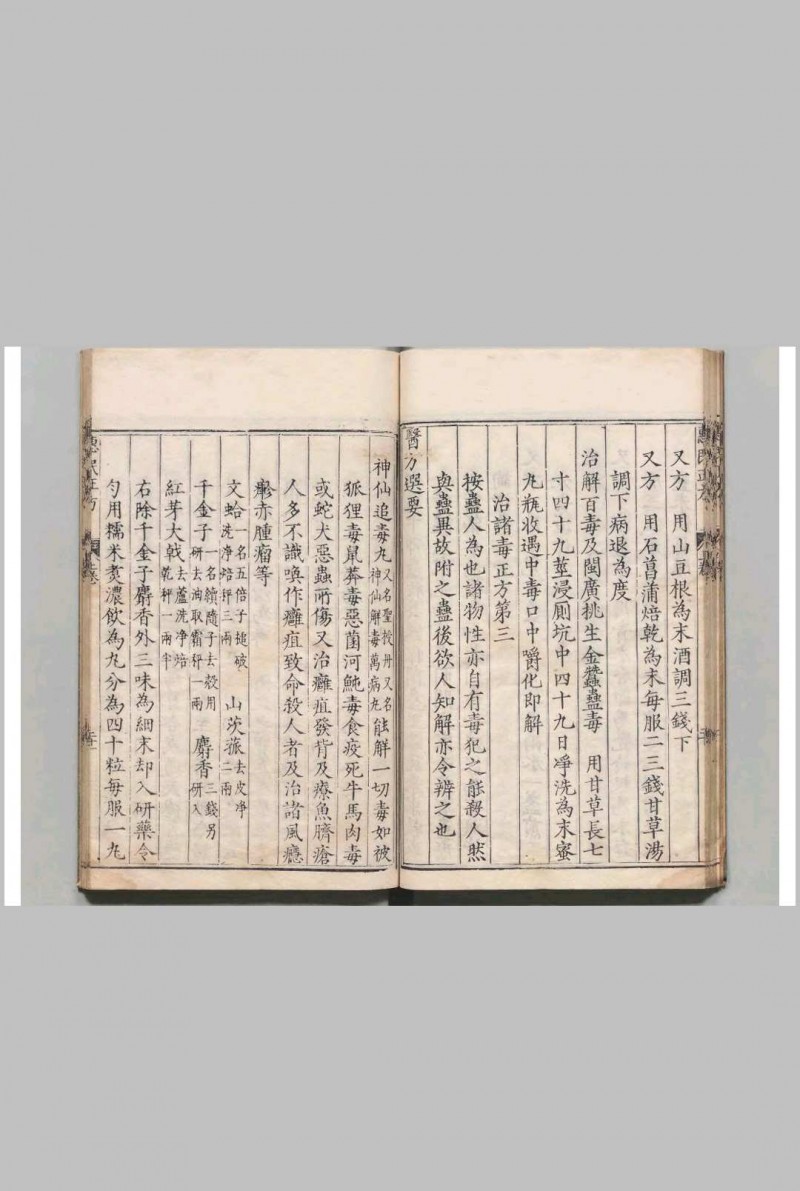 又方　用山豆根為末酒調三錢下
又方　用石菖蒲焙乾為末每服二三錢甘草湯
調下病退為度
治解百毒及閩廣挑生金蠶蠱毒　用甘草長七
寸四十九莖浸厠坑中四十九日凈洗為末蜜
丸瓶收遇中毒口中嚼化即解
治諸毒正方第三
按蠱人為也諸物性亦自有毒犯之能殺人然
與蠱異故附之蠱後欲人知解亦令辨之也
醫方選要
神仙追毒丸又名聖授丹又名神仙解毒萬病丸能解一切毒如被
狐狸毒鼠莽毒惡菌河魨毒食疫死牛馬肉毒
或蛇犬惡蟲所傷又治癰疽發背及療魚臍瘡
人多不識喚作癰疽致命殺人者及治諸風癮
𤺋亦腫瘤等
文蛤一名五倍子搥破洗凈焙秤三兩　山茨菰去皮凈二兩
千金子一名續隨子去殼用研去油取霜秤一兩　麝香三錢另研入
紅芽大戟去蘆洗凈焙乾秤一兩半
右除千金子麝香外三味為細末却入研藥令
勻用糯米煑濃飲為丸分為四十粒每服一丸
惠民正方